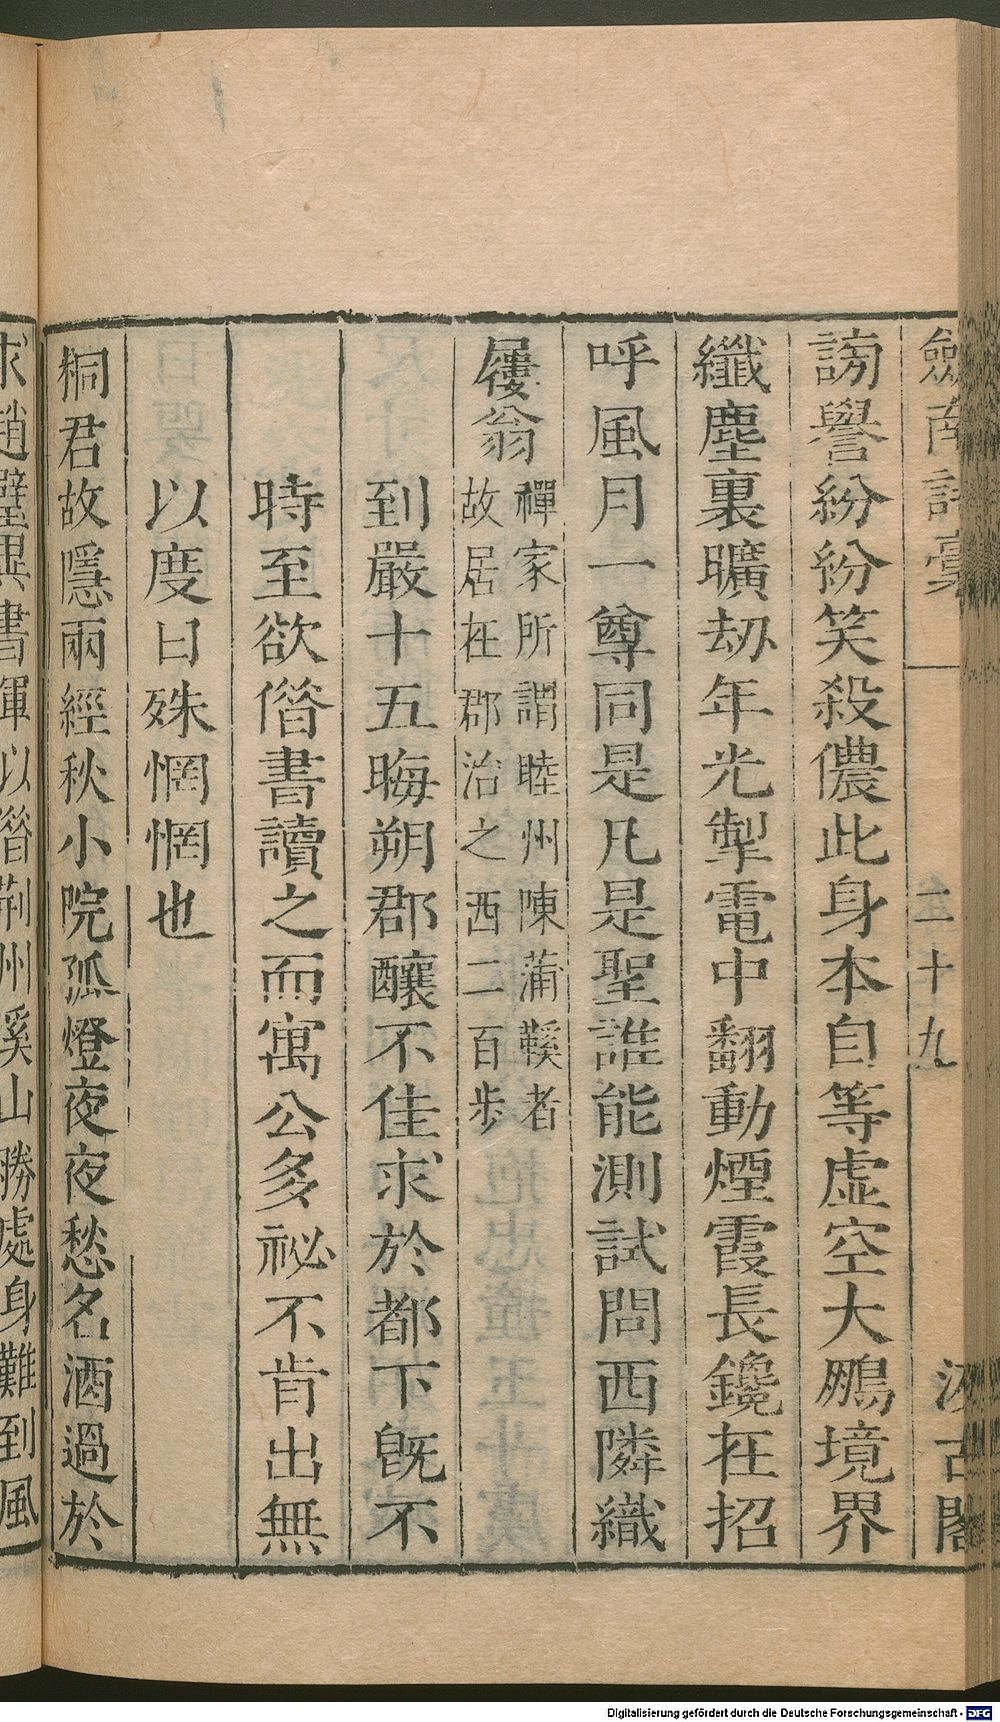 劒南詩藳
二十九
汲古閣
謗譽紛紛笑殺儂此身本自等虛空大鵬境界
纖塵裏曠劫年光掣電中翻動煙霞長鑱在招
呼風月一尊同是凡是聖誰能測試問西隣織
屨翁禪家所謂睦州陳蒲鞵者
故居在郡治之西二百步
到嚴十五晦朔郡釀不佳求於都下旣不
時至欲借書讀之而寓公多祕不肯出無
以度日殊惘惘也
桐君故隱兩經秋小院孤燈夜夜愁名酒過於
求趙璧異書渾以借荆州溪山勝處身難到風
Digitalisierung gefördert durch die Deutsche Forschungsgemeinschaft - DFG